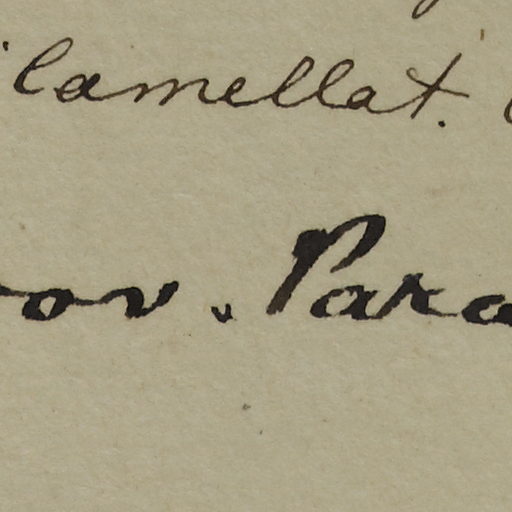 lamellat.
ov. Para